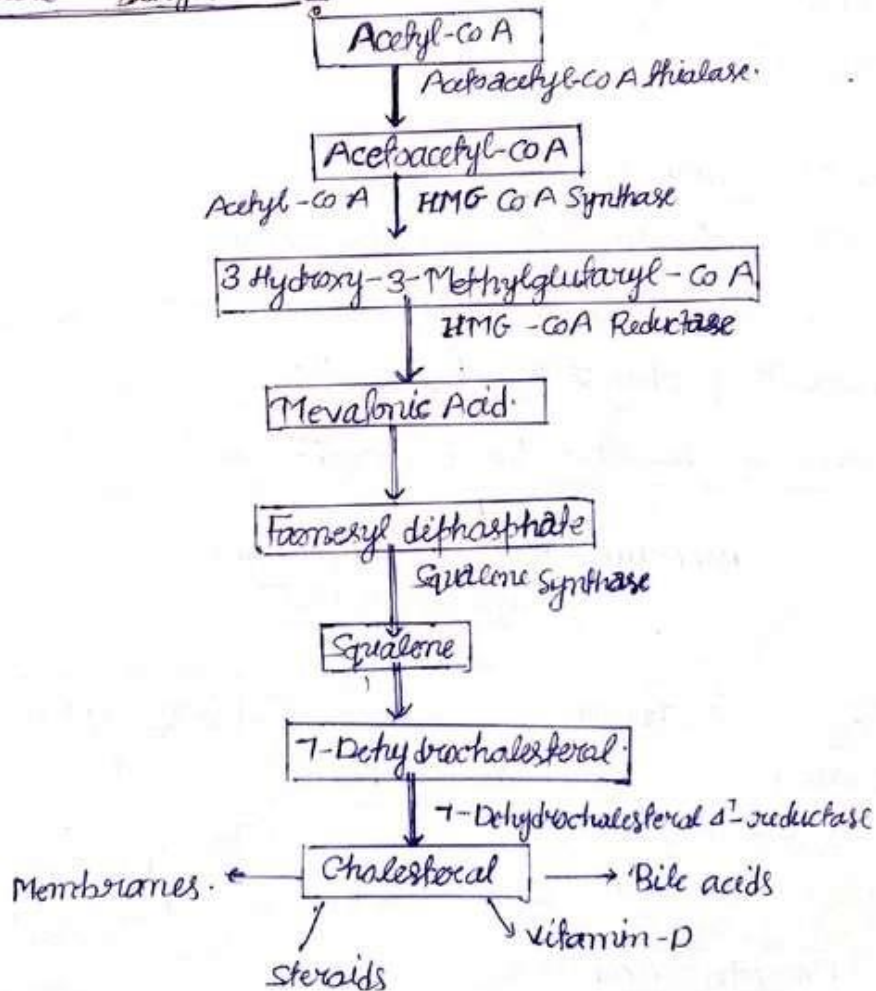 Acetyl-CoA
Acetoacetyl-CoA thialase.
Acetoacetyl-CoA
Acetyl-CoA HMG CoA Synthase
3 Hydroxy-3-Methylglutaryl-CoA
HMG-CoA Reductase
Mevalonic Acid.
Farnesyl diphosphate
Squalene Synthase
Squalene
7-Dehydrocholesterol.
7-Dehydrocholesterol Δ7-reductase
Membranes. Cholesterol Bile acids
Steroids Vitamin-D